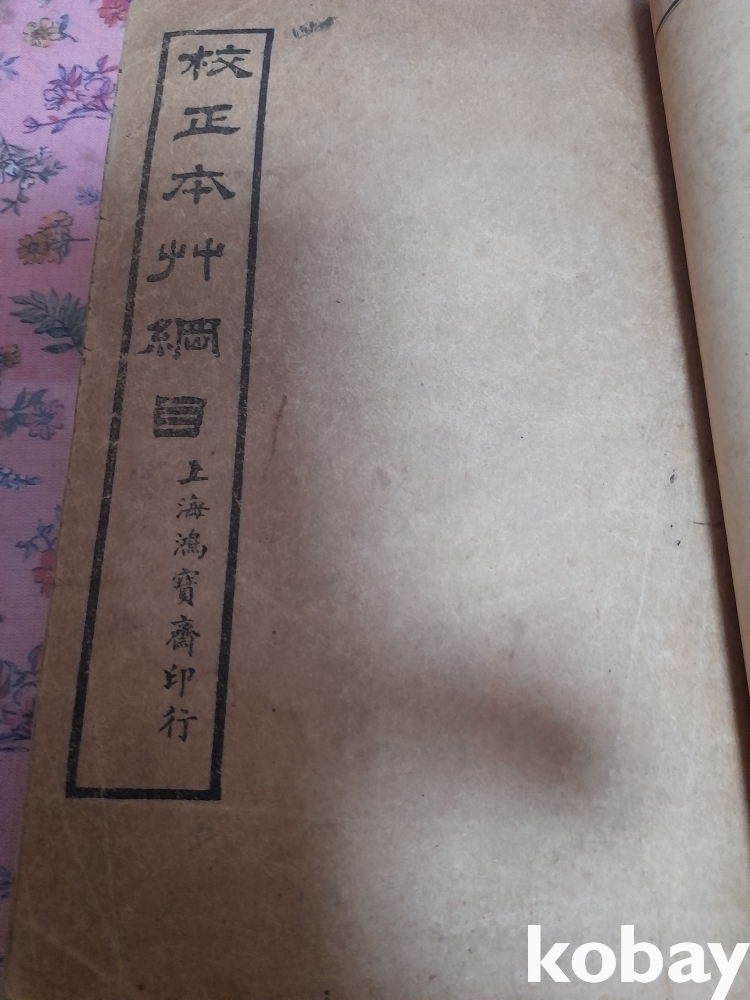 校正本艸綱目
上海鴻寶齋印行
kobay